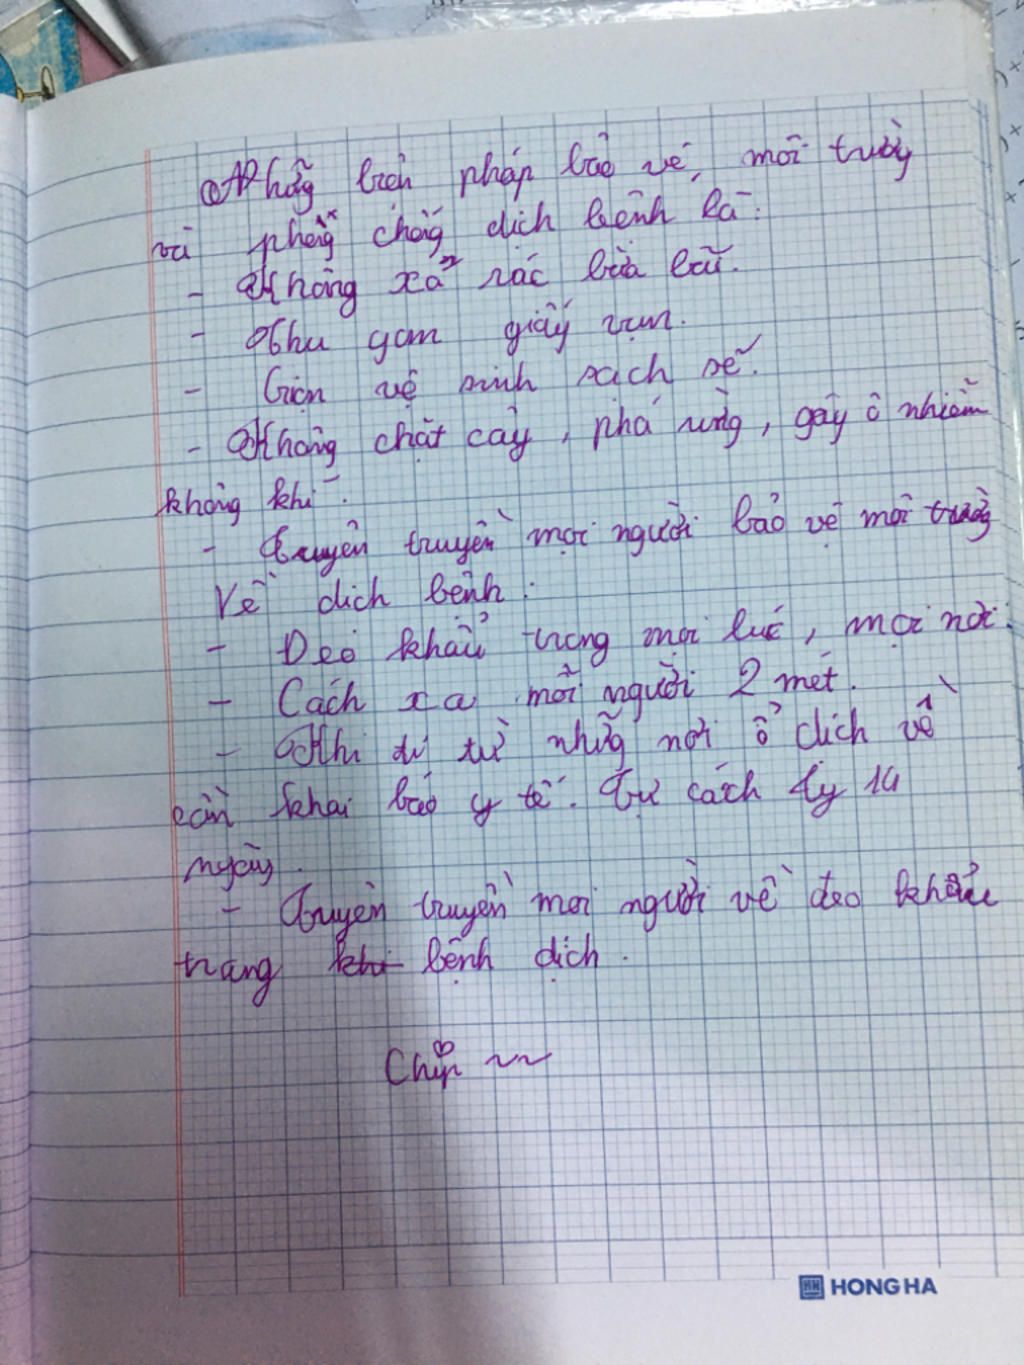 Những biện pháp bảo vệ, môi trường
và phòng chống dịch bệnh là:
- Không xả rác bừa bãi.
- Thu gom giấy vụn.
- Giọn vệ sinh sạch sẽ.
- Không chặt cây, phá rừng, gây ô nhiễm
không khí.
- Truyền truyền mọi người bảo vệ môi trường
Về dich bệnh:
- Đeo khẩu trang mọi lúc, mọi nơi.
- Cách xa mỗi người 2 mét.
- Khi đi từ những nơi ổ dich về
cần khai báo y tế. Tự cách ly 14
ngày.
- Truyền truyền mọi người về đeo khẩu
trang khi bệnh dịch.
Chip ~~
HONG HA